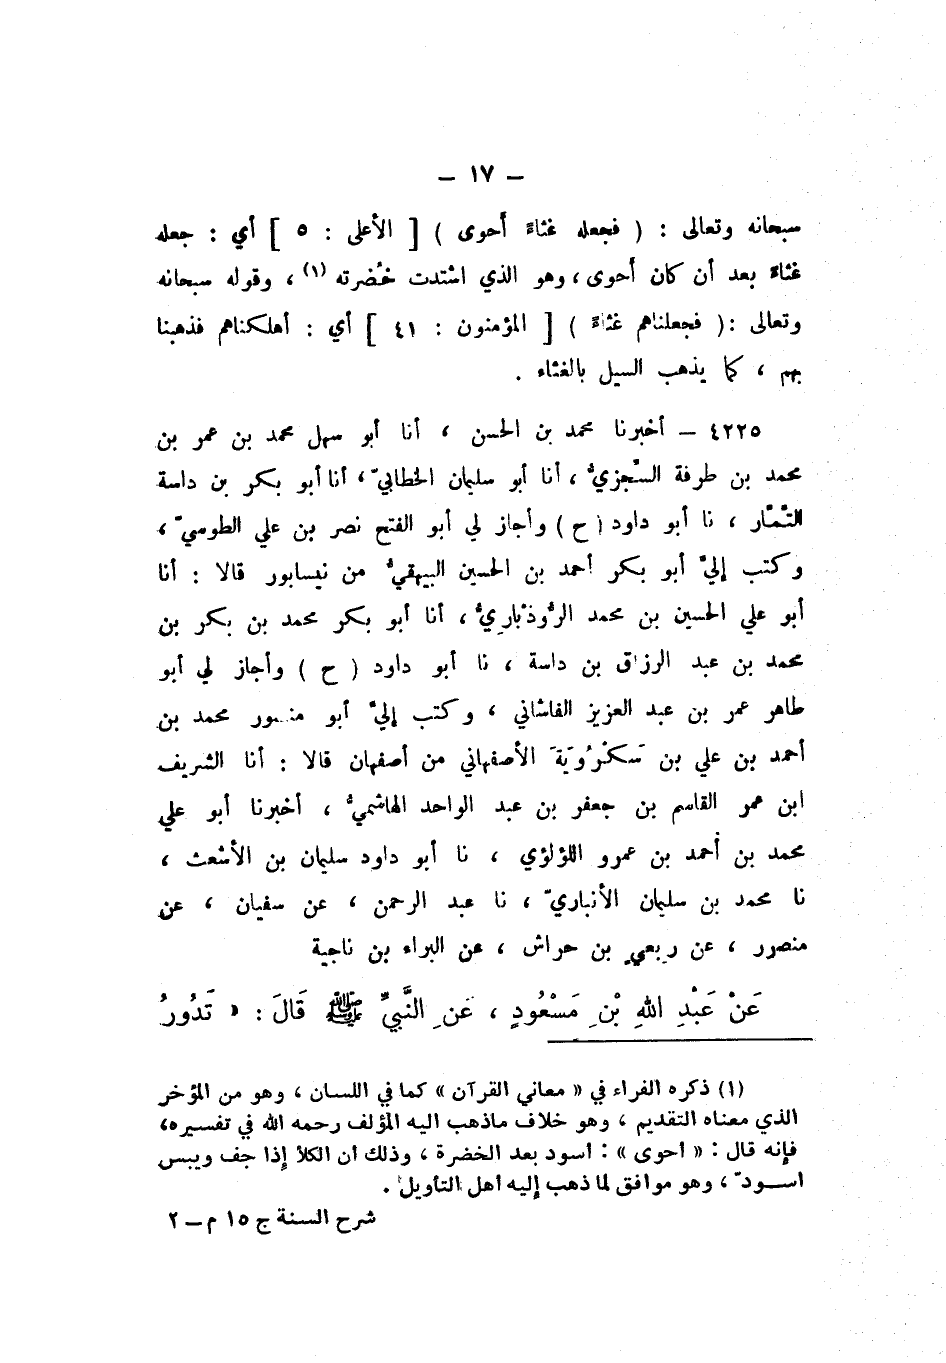 – ١٧ –
سبحانه وتعالى : ( فجعله غثاءً أحوى ) [ الأعلى : ٥ ] أي : جعله
غثاءً بعد أن كان أحوى ، وهو الذي اشتدت خُضرته (١) ، وقوله سبحانه
وتعالى : ( فجعلناهم غثاءً ) [ المؤمنون : ٤١ ] أي : أهلكناهم فذهبنا
بهم ، كما يذهب السيل بالغثاء .
٤٢٢٥ – أخبرنا محمد بن الحسن ، أنا أبو سهل محمد بن عمر بن
محمد بن طرفة السِّجزيُّ ، أنا أبو سليمان الخطابيّ ، أنا أبو بكر بن داسة
التَّمَّار ، نا أبو داود ( ح ) وأجاز لي أبو الفتح نصر بن علي الطوسيّ ،
وكتب إليَّ أبو بكر أحمد بن الحسين البيهقيُّ من نيسابور قالا : أنا
أبو علي الحسين بن محمد الرُّوذْباريُّ ، أنا أبو بكر محمد بن بكر بن
محمد بن عبد الرزاق بن داسة ، نا أبو داود ( ح ) وأجاز لي أبو
طاهر عمر بن عبد العزيز الفاشاني ، وكتب إليَّ أبو منصور محمد بن
أحمد بن علي بن سَكْرُوَيَةَ الأصفهاني من أصفهان قالا : أنا الشريف
ابن عمو القاسم بن جعفر بن عبد الواحد الهاشميُّ ، أخبرنا أبو علي
محمد بن أحمد بن عمرو اللؤلؤي ، نا أبو داود سليمان بن الأشعث ،
نا محمد بن سليمان الأنباريّ ، نا عبد الرحمن ، عن سفيان ، عن
منصور ، عن رِبعي بن حراش ، عن البراء بن ناجية
عَنْ عَبْدِ اللهِ بْنِ مَسْعُودٍ ، عَنِ النَّبِيِّ ﷺ قَالَ : « تَدُورُ
(١) ذكره الفراء في « معاني القرآن » كما في اللسان ، وهو من المؤخر
الذي معناه التقديم ، وهو خلاف ماذهب اليه المؤلف رحمه الله في تفسيره،
فإنه قال : « أحوى » : أسود بعد الخضرة ، وذلك أن الكلأ إذا جف ويبس
اســودّ ، وهو موافق لما ذهب إليه أهل التأويل .
شرح السنة ج ١٥ م – ٢